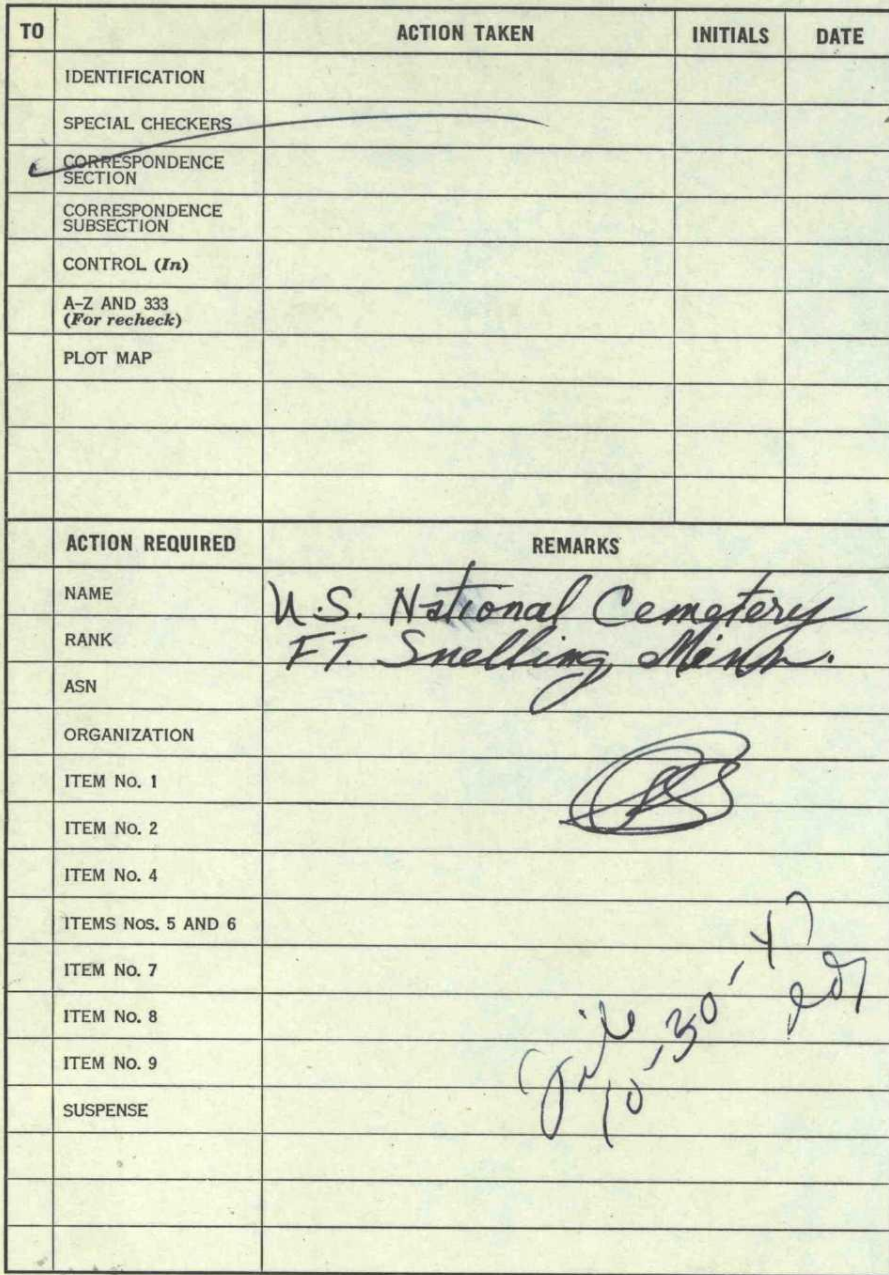 TO ACTION TAKEN INITIALS DATE
IDENTIFICATION
SPECIAL CHECKERS
CORRESPONDENCE
SECTION
CORRESPONDENCE
SUBSECTION
CONTROL (In)
A-Z AND 333
(For recheck)
PLOT MAP
ACTION REQUIRED REMARKS
NAME
U.S. National Cemetery
RANK
FT. Snelling Minn.
ASN
ORGANIZATION
ITEM No. 1
ITEM No. 2
ITEM No. 4
ITEMS Nos. 5 AND 6
ITEM No. 7
ITEM No. 8
ITEM No. 9
File
10-30-47
SUSPENSE